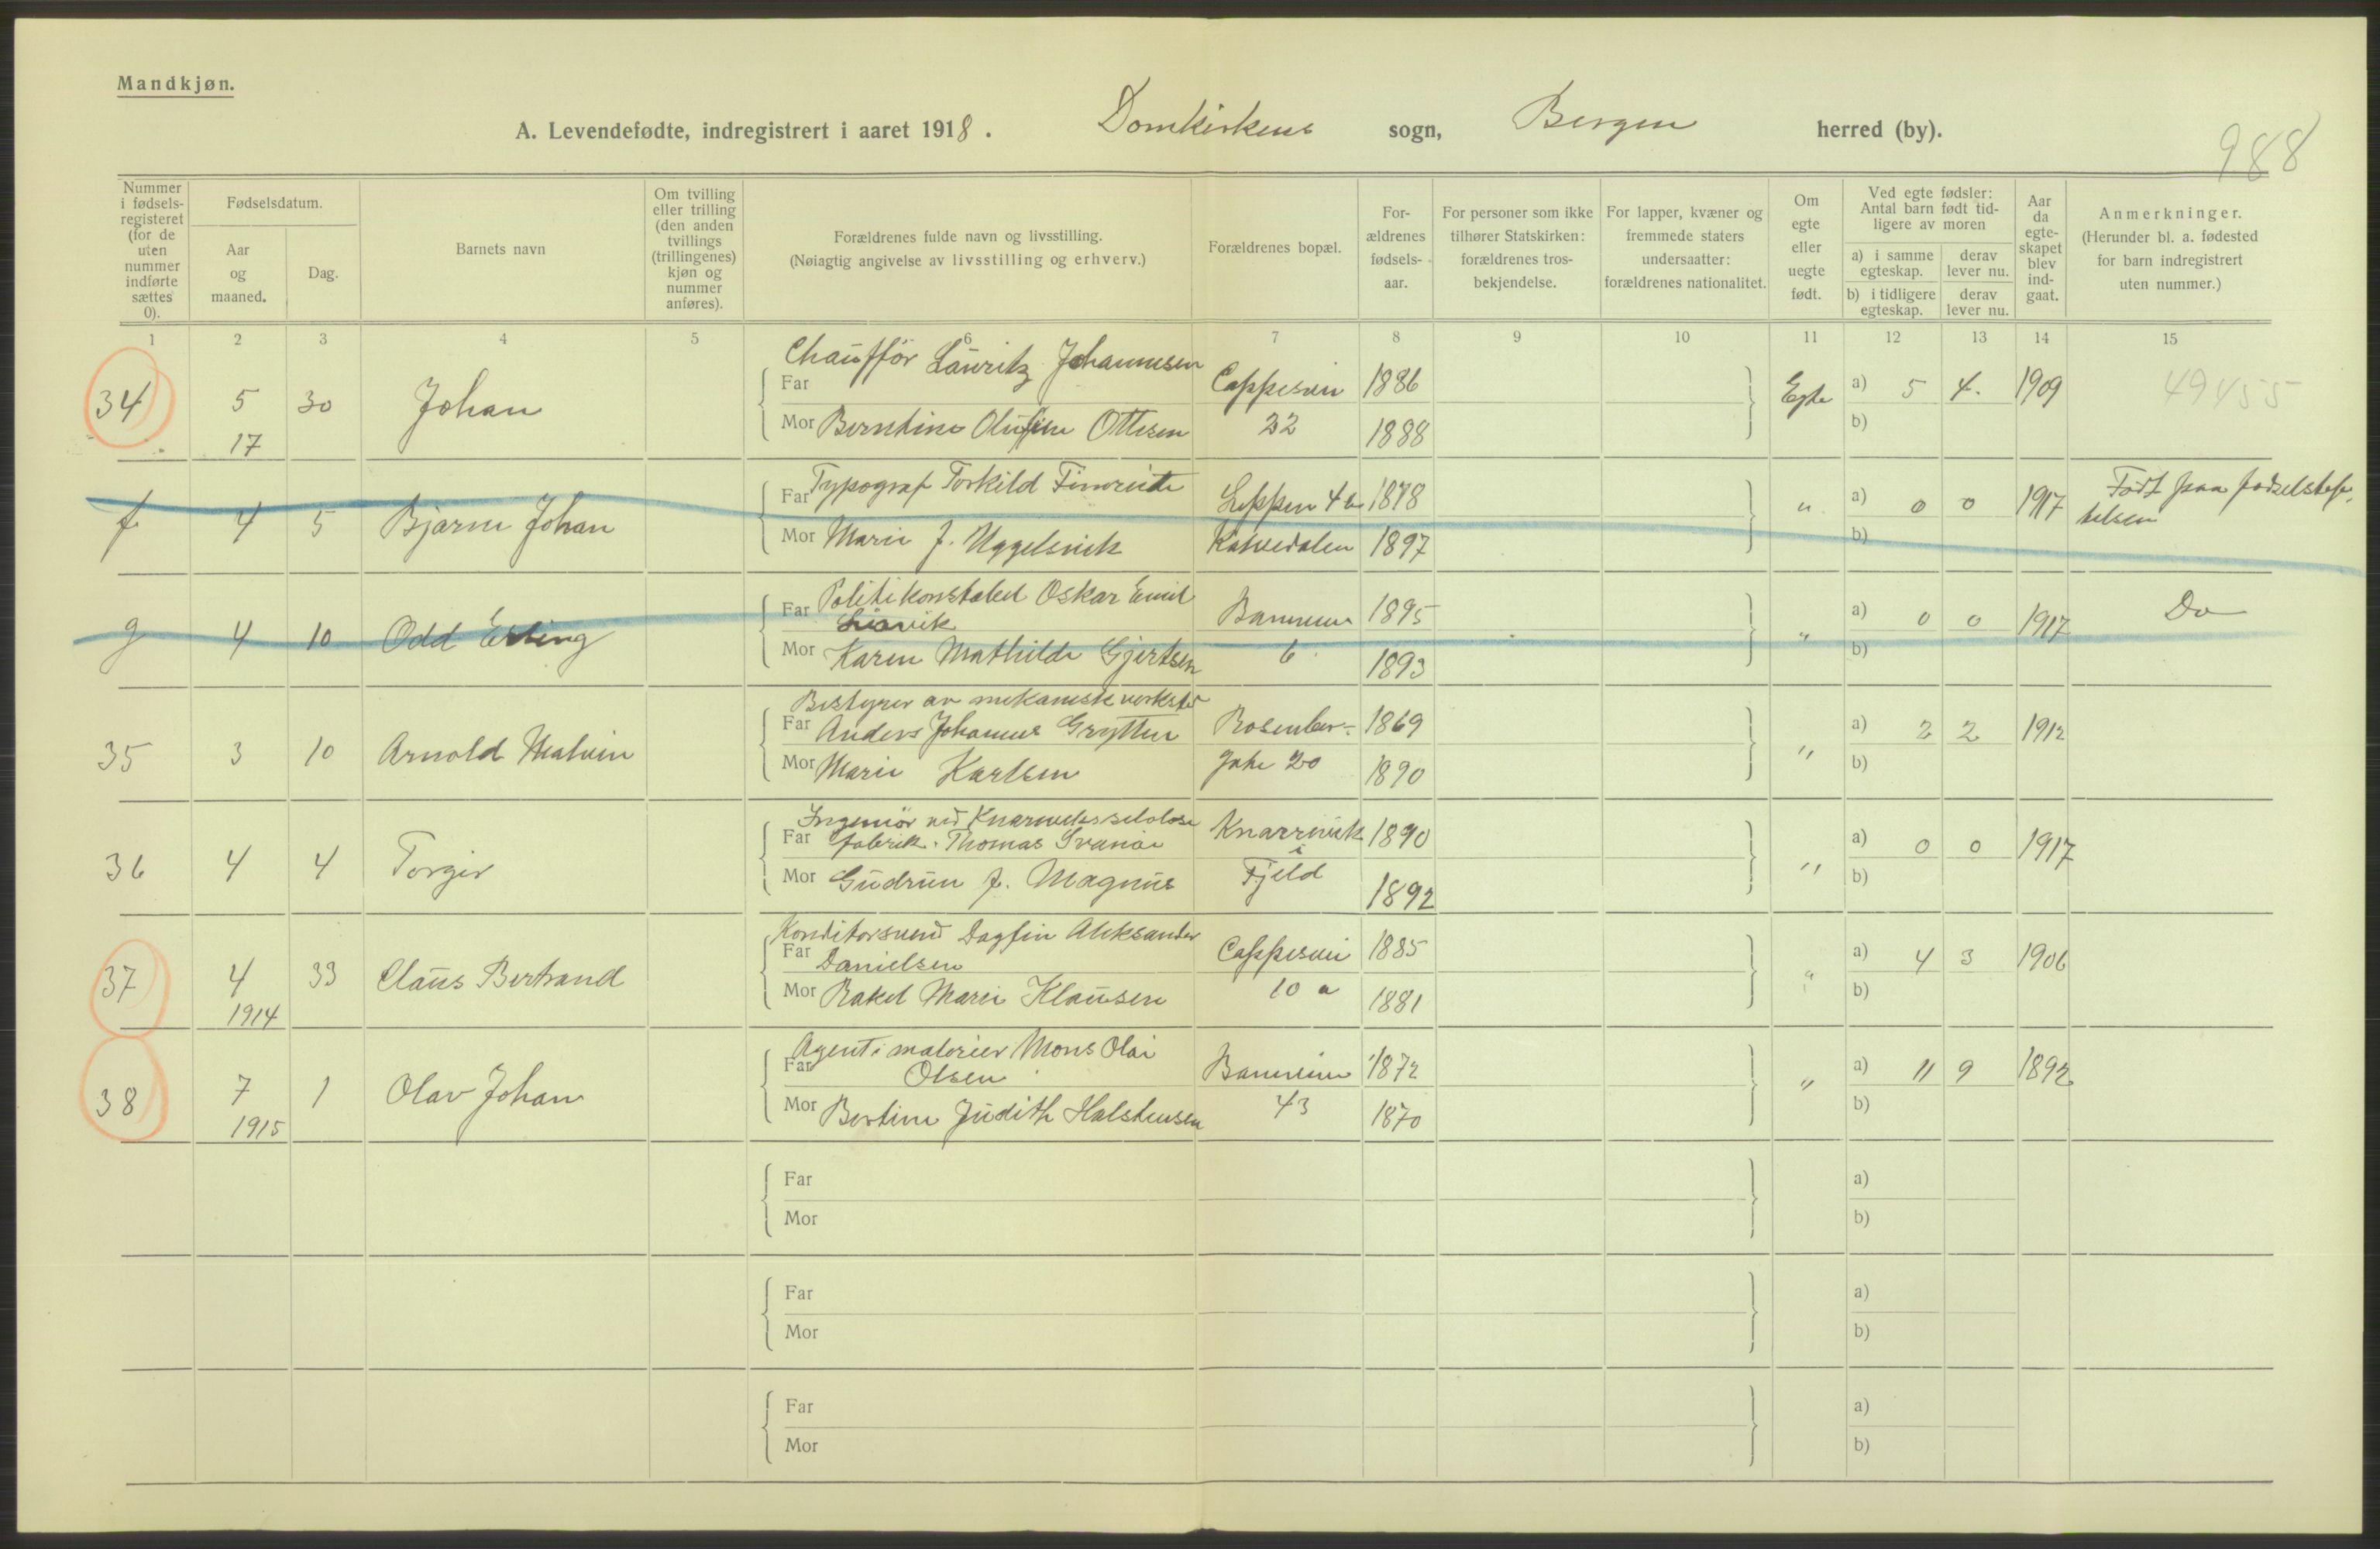 Mandkjøn.
A. Levendefødte, indregistrert i aaret 1918. Domkirkens sogn, Bergen herred (by).
988
Nummer i fødselsregisteret (for de uten nummer indførte sættes 0).
Fødselsdatum.
Aar og maaned.
Dag.
Barnets navn
Om tvilling eller trilling (den anden tvillings (trillingenes) kjøn og nummer anføres).
Forældrenes fulde navn og livsstilling.
(Nøiagtig angivelse av livsstilling og erhverv.)
Forældrenes bopæl.
Forældrenes fødselsaar.
For personer som ikke tilhører Statskirken: forældrenes trosbekjendelse.
For lapper, kvæner og fremmede staters undersaatter: forældrenes nationalitet.
Om egte eller uegte født.
Ved egte fødsler: Antal barn født tidligere av moren
a) i samme egteskap.
derav lever nu.
b) i tidligere egteskap.
derav lever nu.
Aar da egteskapet blev indgaat.
Anmerkninger.
(Herunder bl. a. fødested for barn indregistrert uten nummer.)
1 2 3 4 5 6 7 8 9 10 11 12 13 14 15
Chaufför Lauritz Johannesen
34 5 30 Johan Far 1886 Egte a) 5 4. 1909 49455
17 Mor Berntine Olufine Ottesen 22 1888 b)
Far Typograf Torkild Fimreite Leppen 4 b 1878 a) 0 0 1917 Født paa fødselsstif-
f 4 5 Bjarne Johan " telsen
Mor Marie J. Uggelsvik Kalvedalen 1897 b)
Far Politikonstabel Oskar Emil 1895 a) 0 0 1917 Do
g 4 10 Odd Erling "
Mor Karen Mathilde Gjertsen 6 1893 b)
Bestyrer av mekanisk verksted
Far Anders Johannes Grytten Rosenber- 1869 a) 2 2 1912
35 3 10 Arnold Malvin "
Mor Marie Karlsen gate 20 1890 b)
Ingeniör ved Knarreviks
Far fabrik. Thomas Svanöe Knarrevik 1890 a) 0 0 1917
36 4 4 Torgeir i "
Mor Gudrun f. Magnus Fjeld 1892 b)
Konditorsvend Dagfin Aleksander
Far Danielsen 1885 a) 4 3 1906
37 4 Claus Bertrand "
1914 Mor Rakel Marie Klausen 10 a 1881 b)
Agent i malerier Mons Olai
Far Olsen 1872 a) 11 9 1892
38 7 1 Olav Johan "
1915 Mor Bertine Judith Halstensen 43 1870 b)
Far a)
Mor b)
Far a)
Mor b)
Far a)
Mor b)